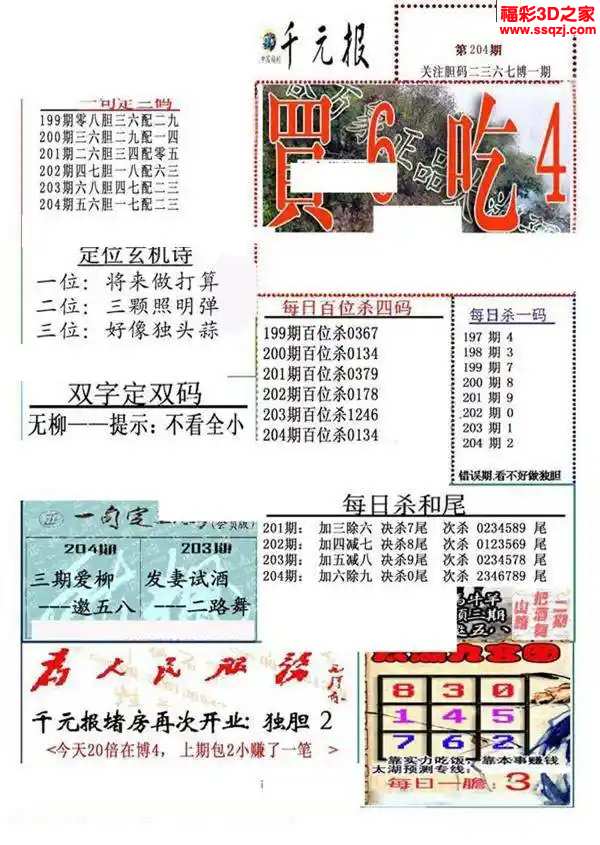 福彩3D之家
www.ssqzj.com
千元报
第204期
关注胆码二三六七博一期
一句定三码
199期零八胆三六配二九
200期三六胆二九配一四
201期二六胆三四配零五
202期四七胆一八配六三
203期六八胆四七配二三
204期五六胆一七配二三
買6吃4
定位玄机诗
一位：将来做打算
二位：三颗照明弹
三位：好像独头蒜
每日百位杀四码
199期百位杀0367
200期百位杀0134
201期百位杀0379
202期百位杀0178
203期百位杀1246
204期百位杀0134
每日杀一码
197 期 4
198 期 3
199 期 7
200 期 8
201 期 9
202 期 0
203 期 1
204 期 2
错误期.看不好做独胆
双字定双码
无柳——提示：不看全小
每日杀和尾
201期： 加三除六 决杀7尾 次杀 0234589 尾
202期： 加四减七 决杀8尾 次杀 0123569 尾
203期： 加五减八 决杀9尾 次杀 0234578 尾
204期： 加六除九 决杀0尾 次杀 2346789 尾
一句定
(会员版)
204期
三期爱柳
---邀五八
203期
发妻试酒
---二路舞
二期
把酒舞
山路
为人民服务
千元报堵房再次开业：独胆 2
<今天20倍在博4，上期包2小赚了一笔 >
九宫图
8 3 0
1 4 5
7 6 2
靠实力吃饭，靠本事赚钱
太湖预测专线：
每日一胆：3